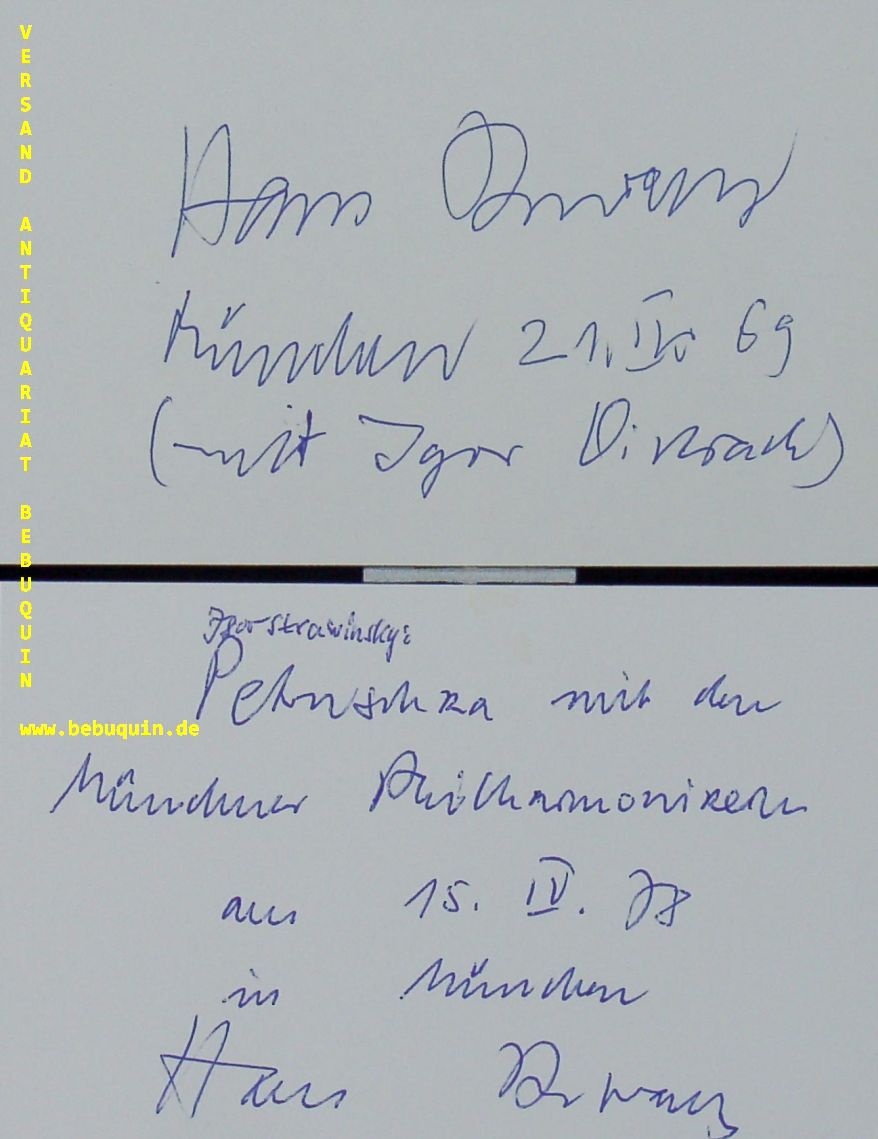 VERSAND ANTIQUARIAT BEBUQUIN
www.bebuquin.de
Hans Drewanz
München 21. IV. 69
(mit Igor Oistrach)
Igor Strawinsky:
Petruschka mit den
Münchner Philharmonikern
am 15. IV. 78
in München
Hans Drewanz